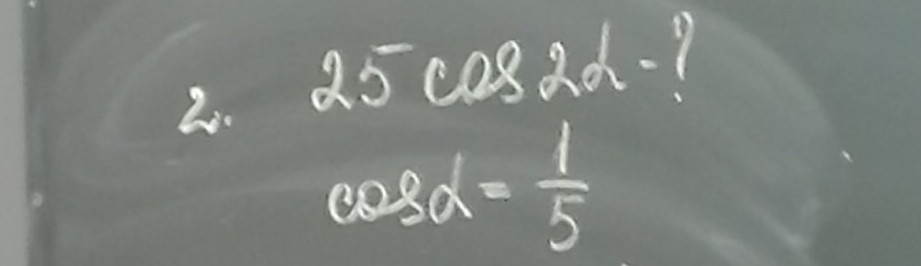 2. 25 cos 2α - ?
cos α = 1/5